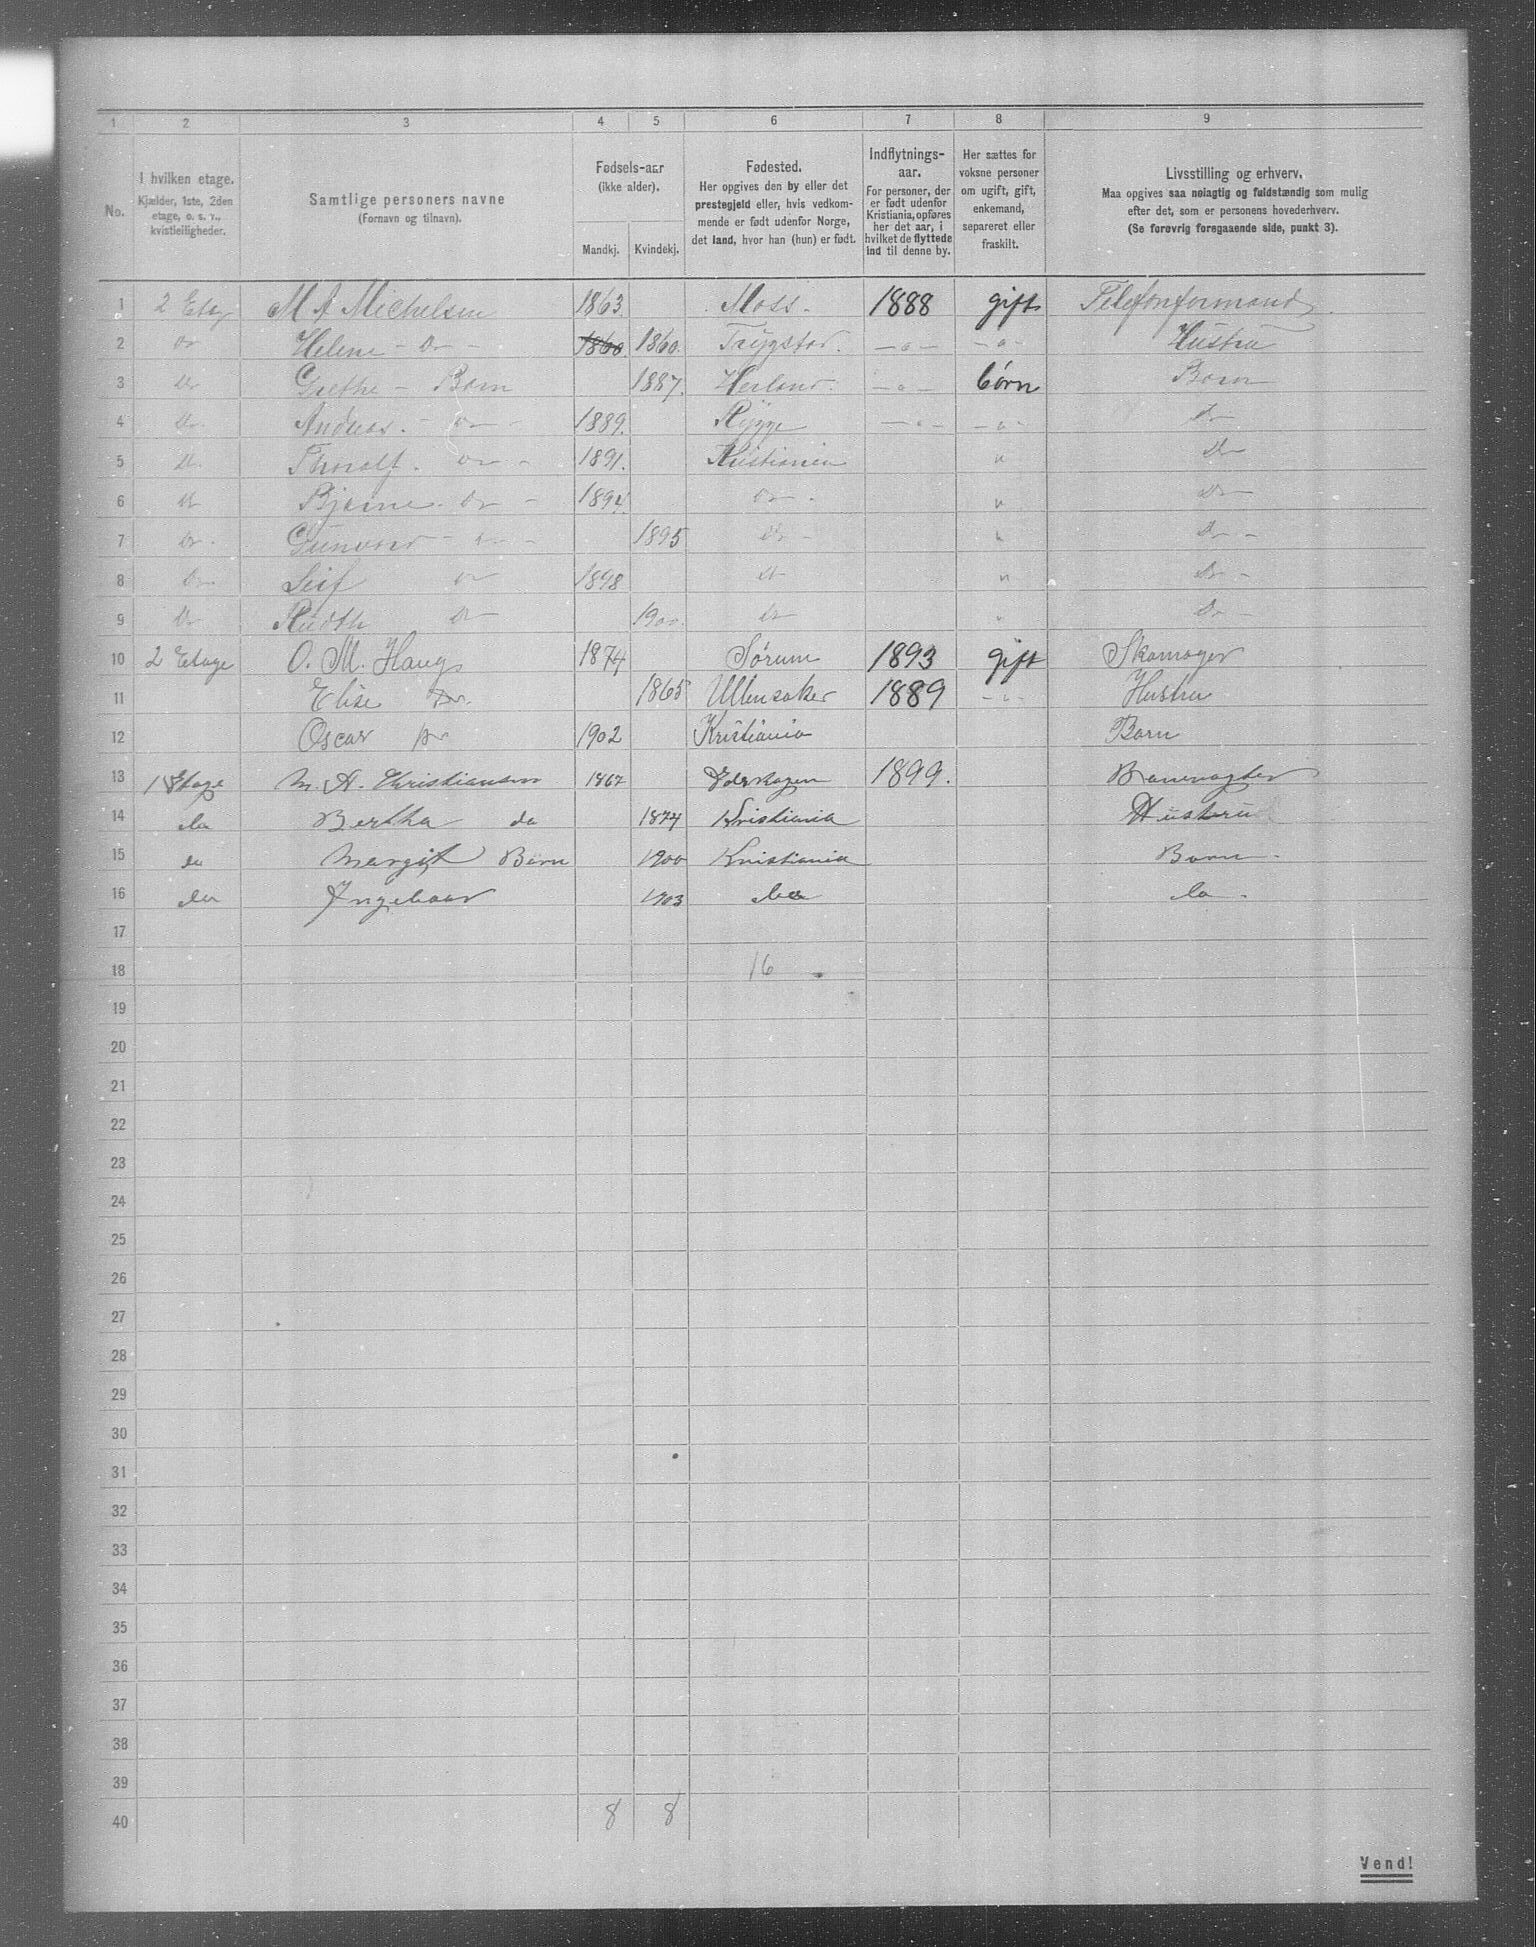 1 2 3 4 5 6 7 8 9
No.
I hvilken etage.
Kjælder, 1ste, 2den
etage, o. s. v.,
kvistleiligheder.
Samtlige personers navne
(Fornavn og tilnavn).
Fødsels-aar
(ikke alder).
Mandkj. Kvindekj.
Fødested.
Her opgives den by eller det
prestegjeld eller, hvis vedkom-
mende er født udenfor Norge,
det land, hvor han (hun) er født.
Indflytnings-
aar.
For personer, der
er født udenfor
Kristiania, opføres
her det aar, i
hvilket de flyttede
ind til denne by.
Her sættes for
voksne personer
om ugift, gift,
enkemand,
separeret eller
fraskilt.
Livsstilling og erhverv.
Maa opgives saa nøiagtig og fuldstændig som mulig
efter det, som er personens hovederhverv.
(Se forøvrig foregaaende side, punkt 3).
1 2 Etag M A Michelsen 1863. Moss. 1888 gift Telefonformand
2 Do Helene - Do - 1860 1860. Trygstad. - o - - o - Hustru
3 Do Grethe - Barn 1887. - o - børn Barn
4 Do Andreas. - Do 1889. Rygge - o - - o - Do
5 Do Thoralf. Do - 1891. Kristiania " Do
6 Do Bjarne. Do - 1894. Do - " Do
7 Do - Gunvor - Do - 1895 Do - " Do -
8 Do Leif Do 1898 Do " Do -
9 Do Rudth Do 1900. Do " Do -
10 2 Etage O. M. Haug 1874 Sørum 1893 gift Skomager
11 Elise Do. 1865 Ullensaker 1889 - o - Hustru
12 Oscar Do 1902 Kristiania Barn
13 1 Etage M. A. Christiansen 1867 1899. Banevogter
14 do Bertha do 1874 Kristiania Hustru
15 do Margit Børn 1900 Kristiania Barn -
16 do Ingeboar 1903 do do -
17
18 16
19
20
21
22
23
24
25
26
27
28
29
30
31
32
33
34
35
36
37
38
39
40 8 8
Vend!